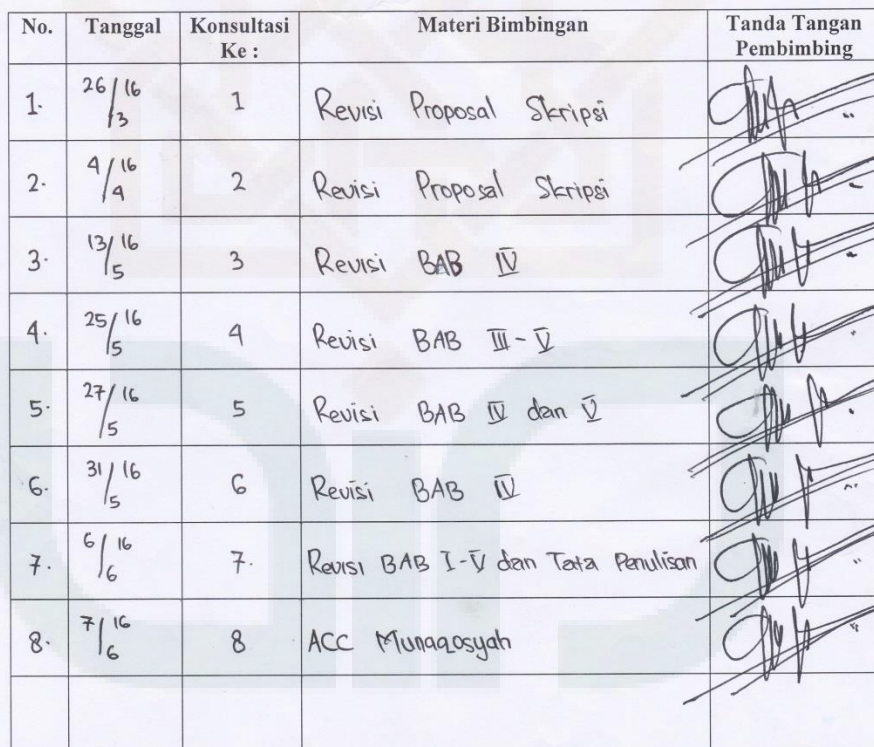 No. Tanggal Konsultasi Ke : Materi Bimbingan Tanda Tangan Pembimbing
1. 26/3 16 1 Revisi Proposal Skripsi
2. 4/4 16 2 Revisi Proposal Skripsi
3. 13/5 16 3 Revisi BAB IV
4. 25/5 16 4 Revisi BAB III - V
5. 27/5 16 5 Revisi BAB IV dan V
6. 31/5 16 6 Revisi BAB IV
7. 6/6 16 7. Revisi BAB I - V dan Tata Penulisan
8. 7/6 16 8 ACC Munaqosyah